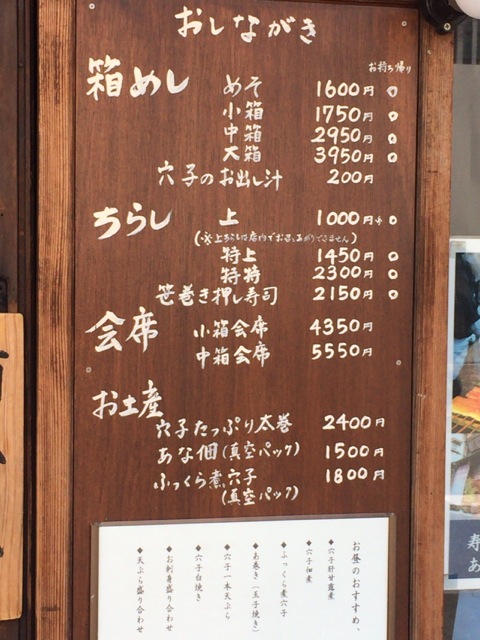 おしながき
お持ち帰り
箱めし めそ 1600円 ○
小箱 1750円 ○
中箱 2950円 ○
大箱 3950円 ○
穴子のお出し汁 200円
ちらし 上 1000円※ ○
(※上ちらしは店内でお召しあがりできません)
特上 1450円 ○
特特 2300円 ○
笹巻き押し寿司 2150円 ○
会席 小箱会席 4350円
中箱会席 5550円
お土産
穴子たっぷり太巻 2400円
あな佃(真空パック) 1500円
ふっくら煮穴子 1800円
(真空パック)
お昼のおすすめ、
◆穴子肝甘露煮
◆穴子佃煮
◆ふっくら煮穴子
◆あ巻き(玉子焼き)
◆穴子一本天ぷら
◆穴子白焼き
◆お刺身盛り合わせ
◆天ぷら盛り合わせ
寿
あ